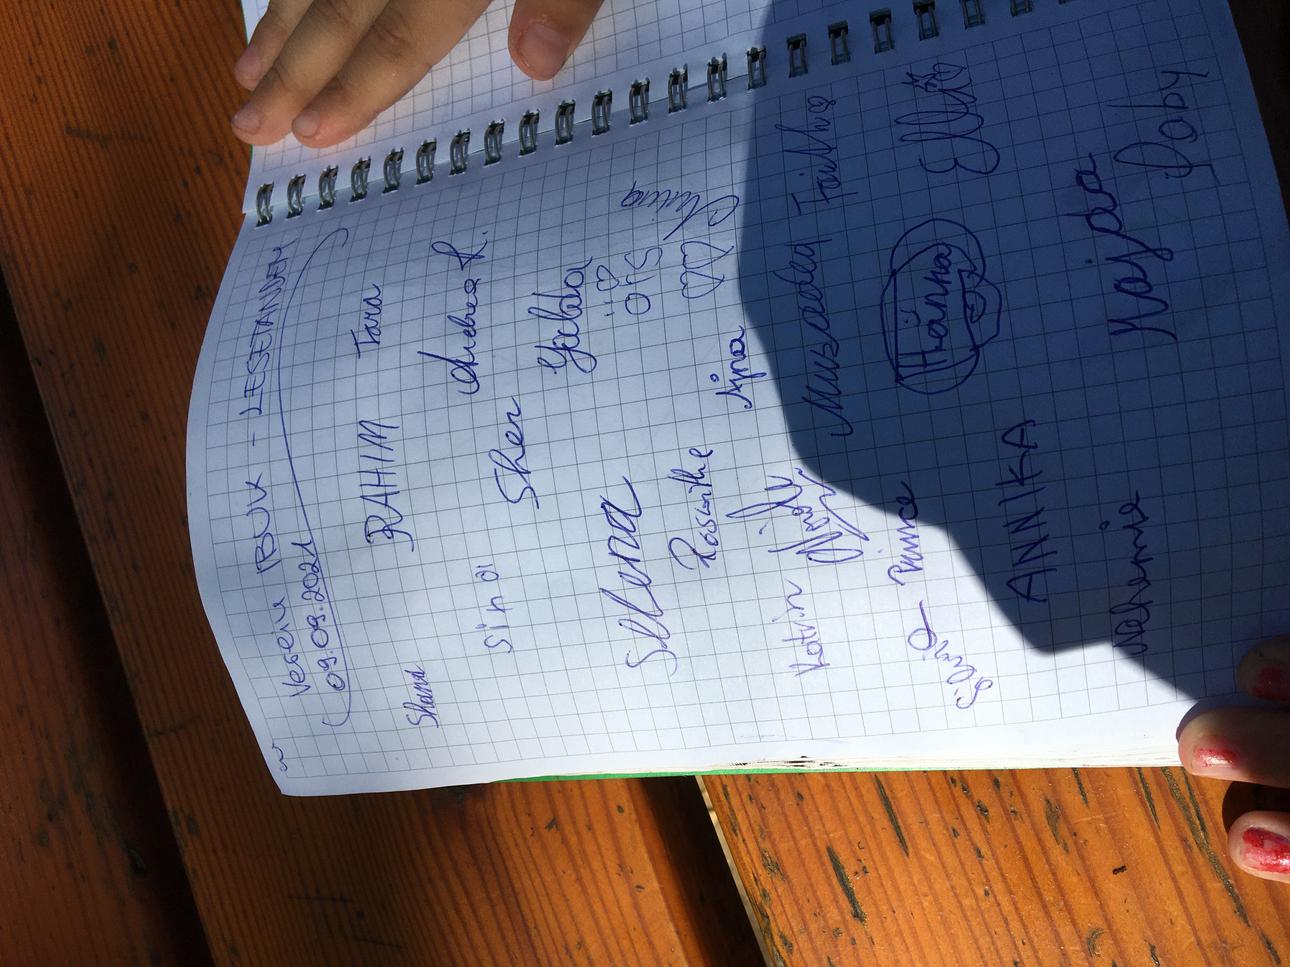 Verein IBUK - LESETANDEM
09.09.2021
RAHIM Tara
Shana
Andrea R.
Sina
Sher
Yalda
Selena
öis
Roswitha
Ajna
Katrin
Muzadea Faith
Prince
Silvia
Hanna
Elli
ANNIKA
Nehemie
Majda
Gaby